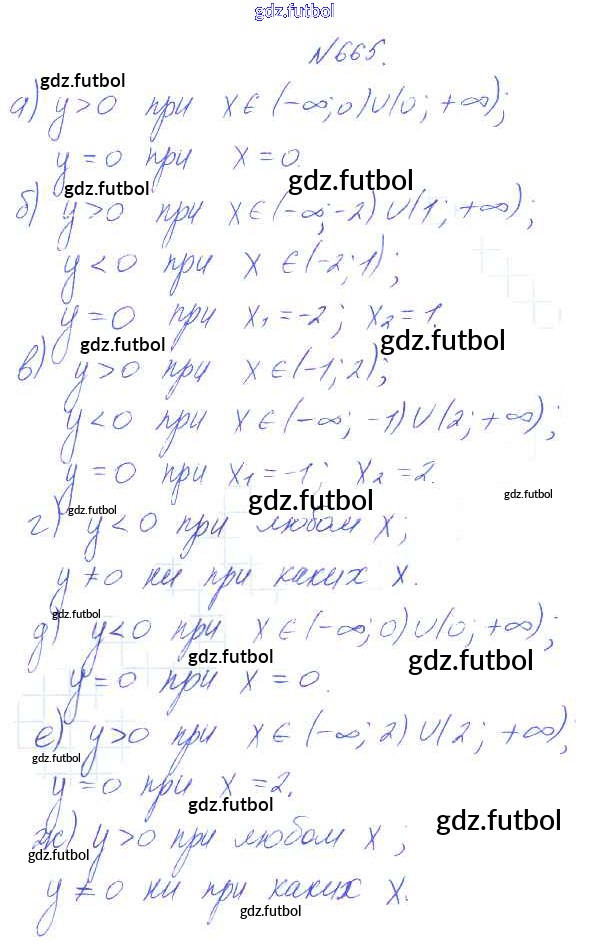 gdz.futbol
N 665.
gdz.futbol
а) y > 0 при x ∈ (-∞; 0) ∪ (0; +∞);
y = 0 при x = 0.
gdz.futbol gdz.futbol
б) y > 0 при x ∈ (-∞; -2) ∪ (1; +∞);
y < 0 при x ∈ (-2; 1);
y = 0 при x₁ = -2; x₂ = 1.
gdz.futbol gdz.futbol
в) y > 0 при x ∈ (-1; 2);
y < 0 при x ∈ (-∞; -1) ∪ (2; +∞);
y = 0 при x₁ = -1; x₂ = 2.
gdz.futbol gdz.futbol gdz.futbol
г) y < 0 при любом x;
y ≠ 0 ни при каких x.
gdz.futbol
д) y < 0 при x ∈ (-∞; 0) ∪ (0; +∞);
gdz.futbol gdz.futbol
y = 0 при x = 0.
е) y > 0 при x ∈ (-∞; 2) ∪ (2; +∞);
gdz.futbol
y = 0 при x = 2.
gdz.futbol gdz.futbol
ж) y > 0 при любом x;
gdz.futbol
y ≠ 0 ни при каких x.
gdz.futbol